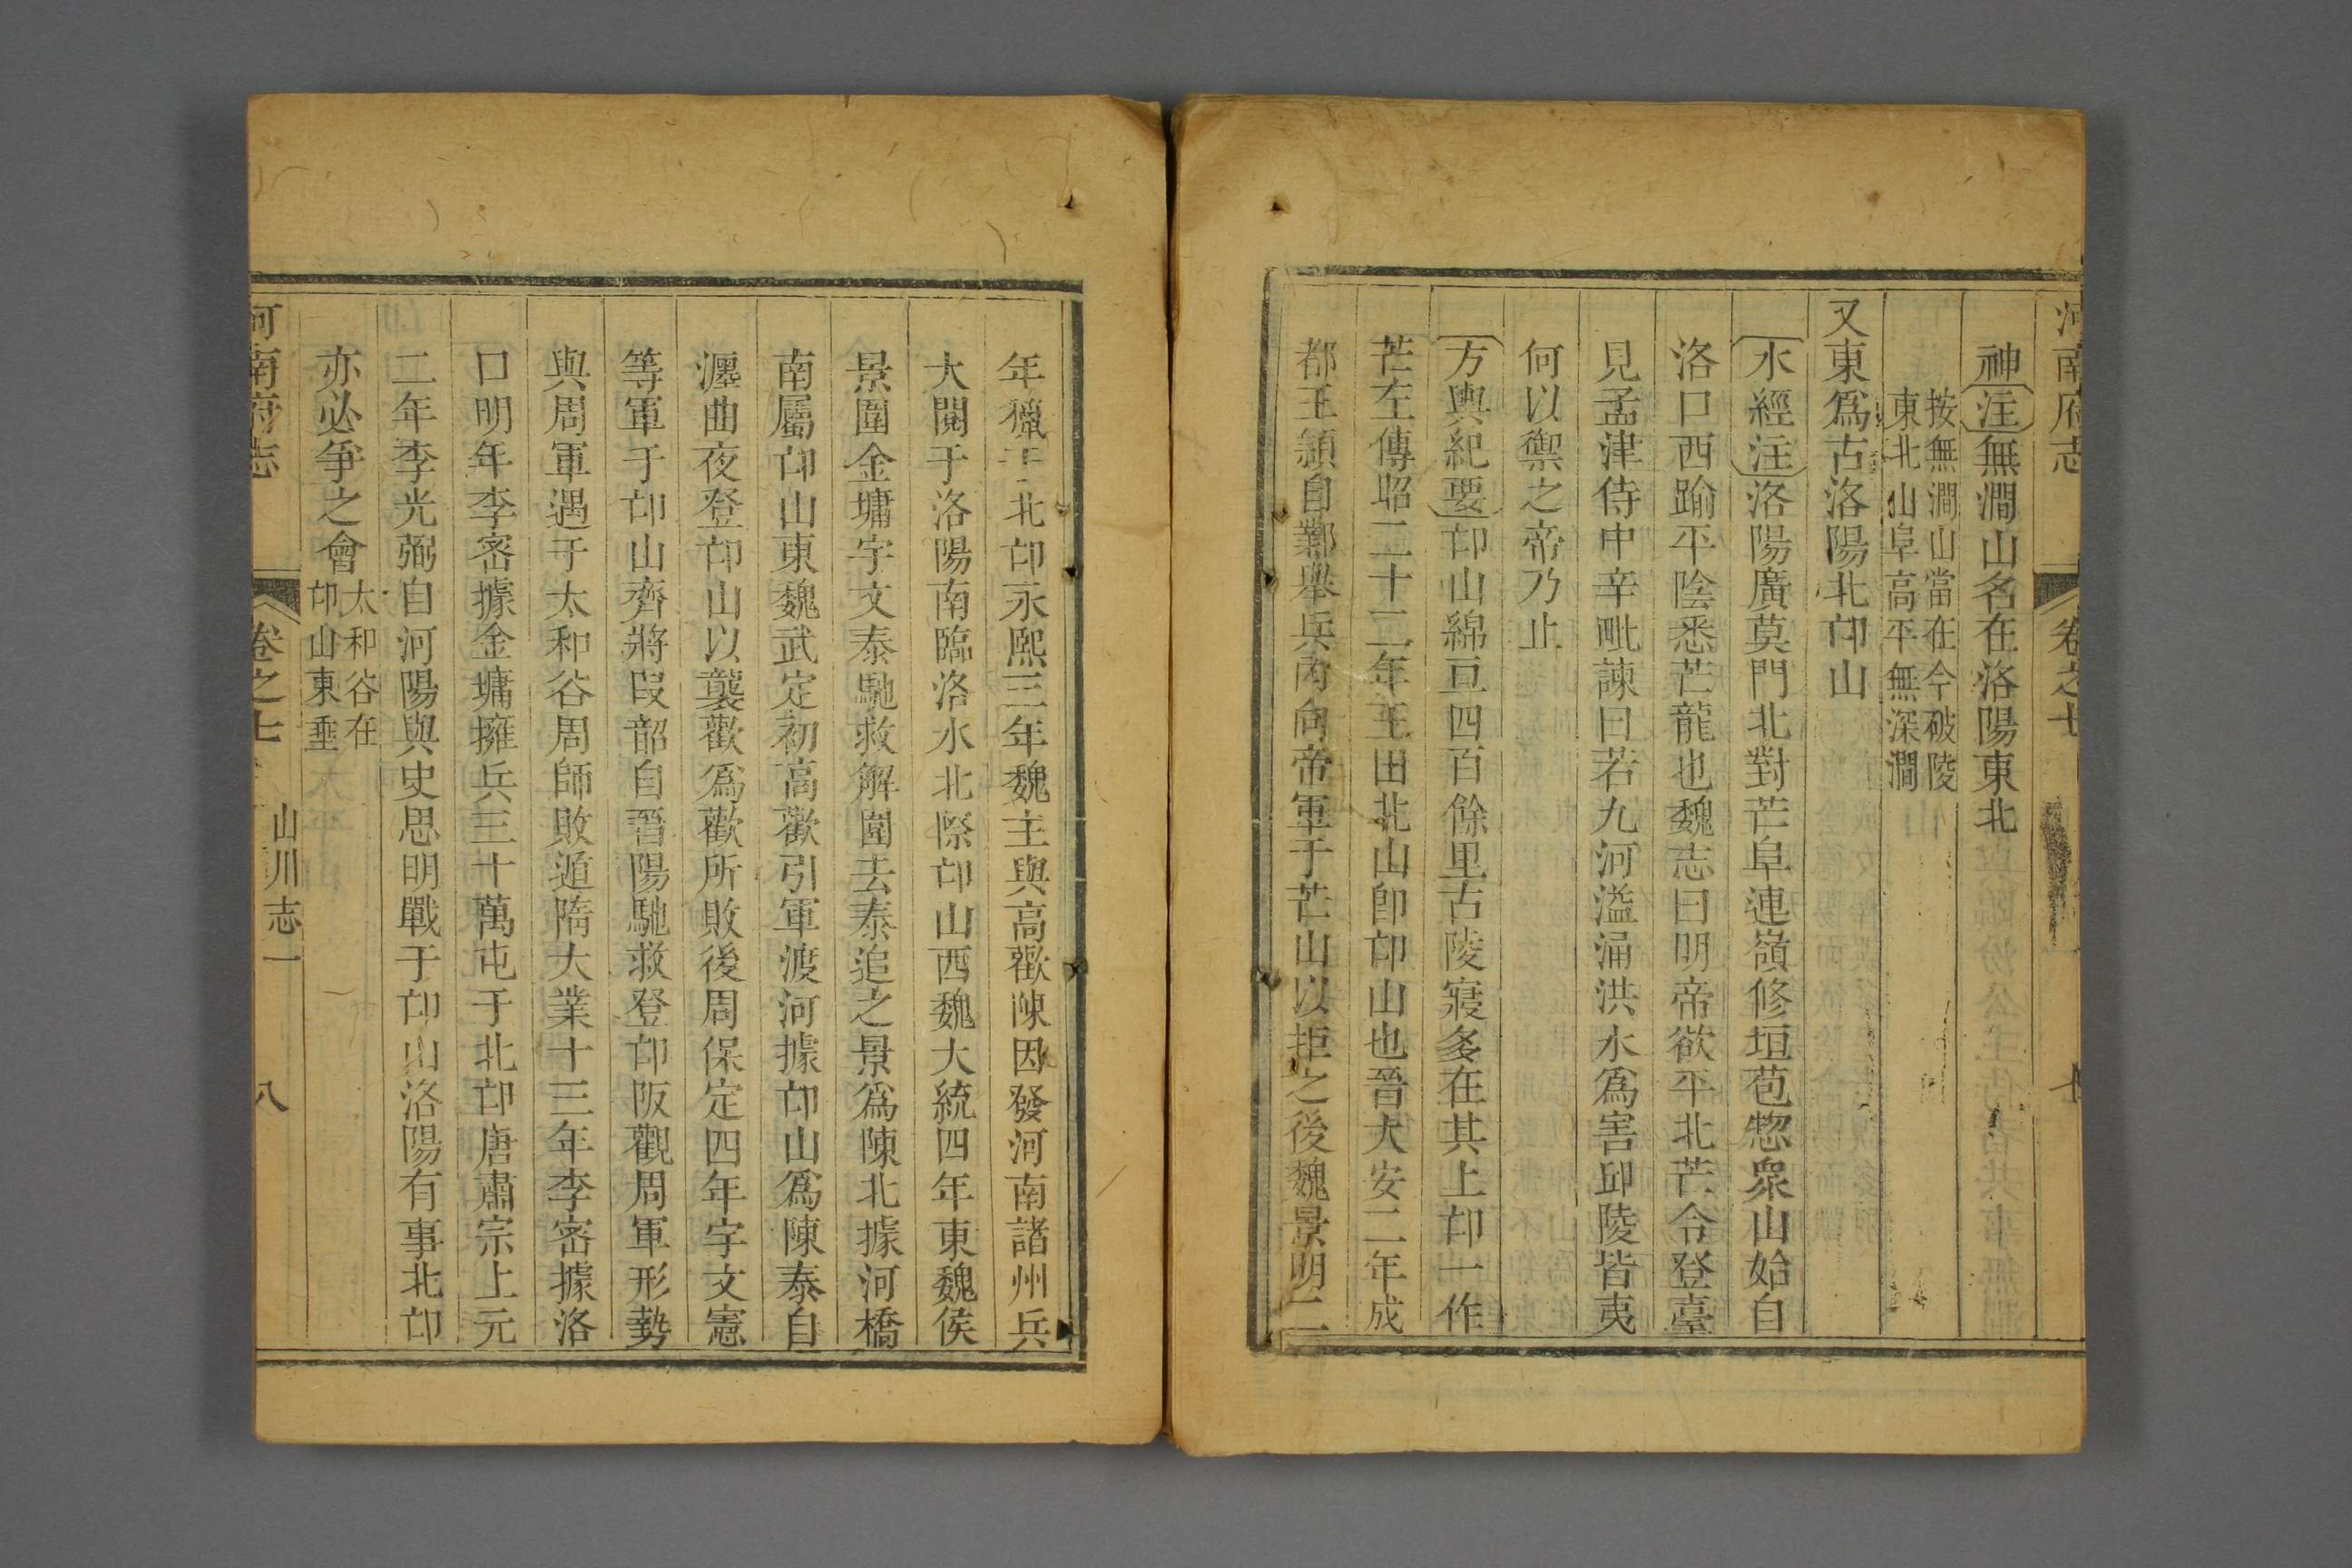 河南府志
卷之七
神注無澗山名在洛陽東北
按無澗山當在今破陵
東北山阜高平無深澗
又東爲古洛陽北邙山
水經注洛陽廣莫門北對芒阜連嶺修垣苞惣衆山始自
洛口西踰平陰悉芒龍也魏志曰明帝欲平北芒令登臺
見孟津侍中辛毗諫曰若九河溢涌洪水爲害邱陵皆夷
何以禦之帝乃止
方輿紀要邙山綿亘四百餘里古陵寢多在其上邙一作
芒左傳昭二十二年王田北山卽邙山也晉大安二年成
都王穎自鄴舉兵內向帝軍于芒山以拒之後魏景明二
年獵于北邙永熙三年魏主與高歡陳因發河南諸州兵
大閱于洛陽南臨洛水北際邙山西魏大統四年東魏侯
景圍金墉宇文泰馳救解圍去泰追之景爲陳北據河橋
南屬邙山東魏武定初高歡引軍渡河據邙山爲陳泰自
瀍曲夜登邙山以襲歡爲歡所敗後周保定四年宇文憲
等軍于邙山齊將段韶自晉陽馳救登邙阪觀周軍形勢
與周軍遇于太和谷周師敗遁隋大業十三年李密據洛
口明年李密據金墉擁兵三十萬屯于北邙唐肅宗上元
二年李光弼自河陽與史思明戰于邙山洛陽有事北邙
亦必爭之會太和谷在
邙山東垂
河南府志
卷之七
山川志一
八